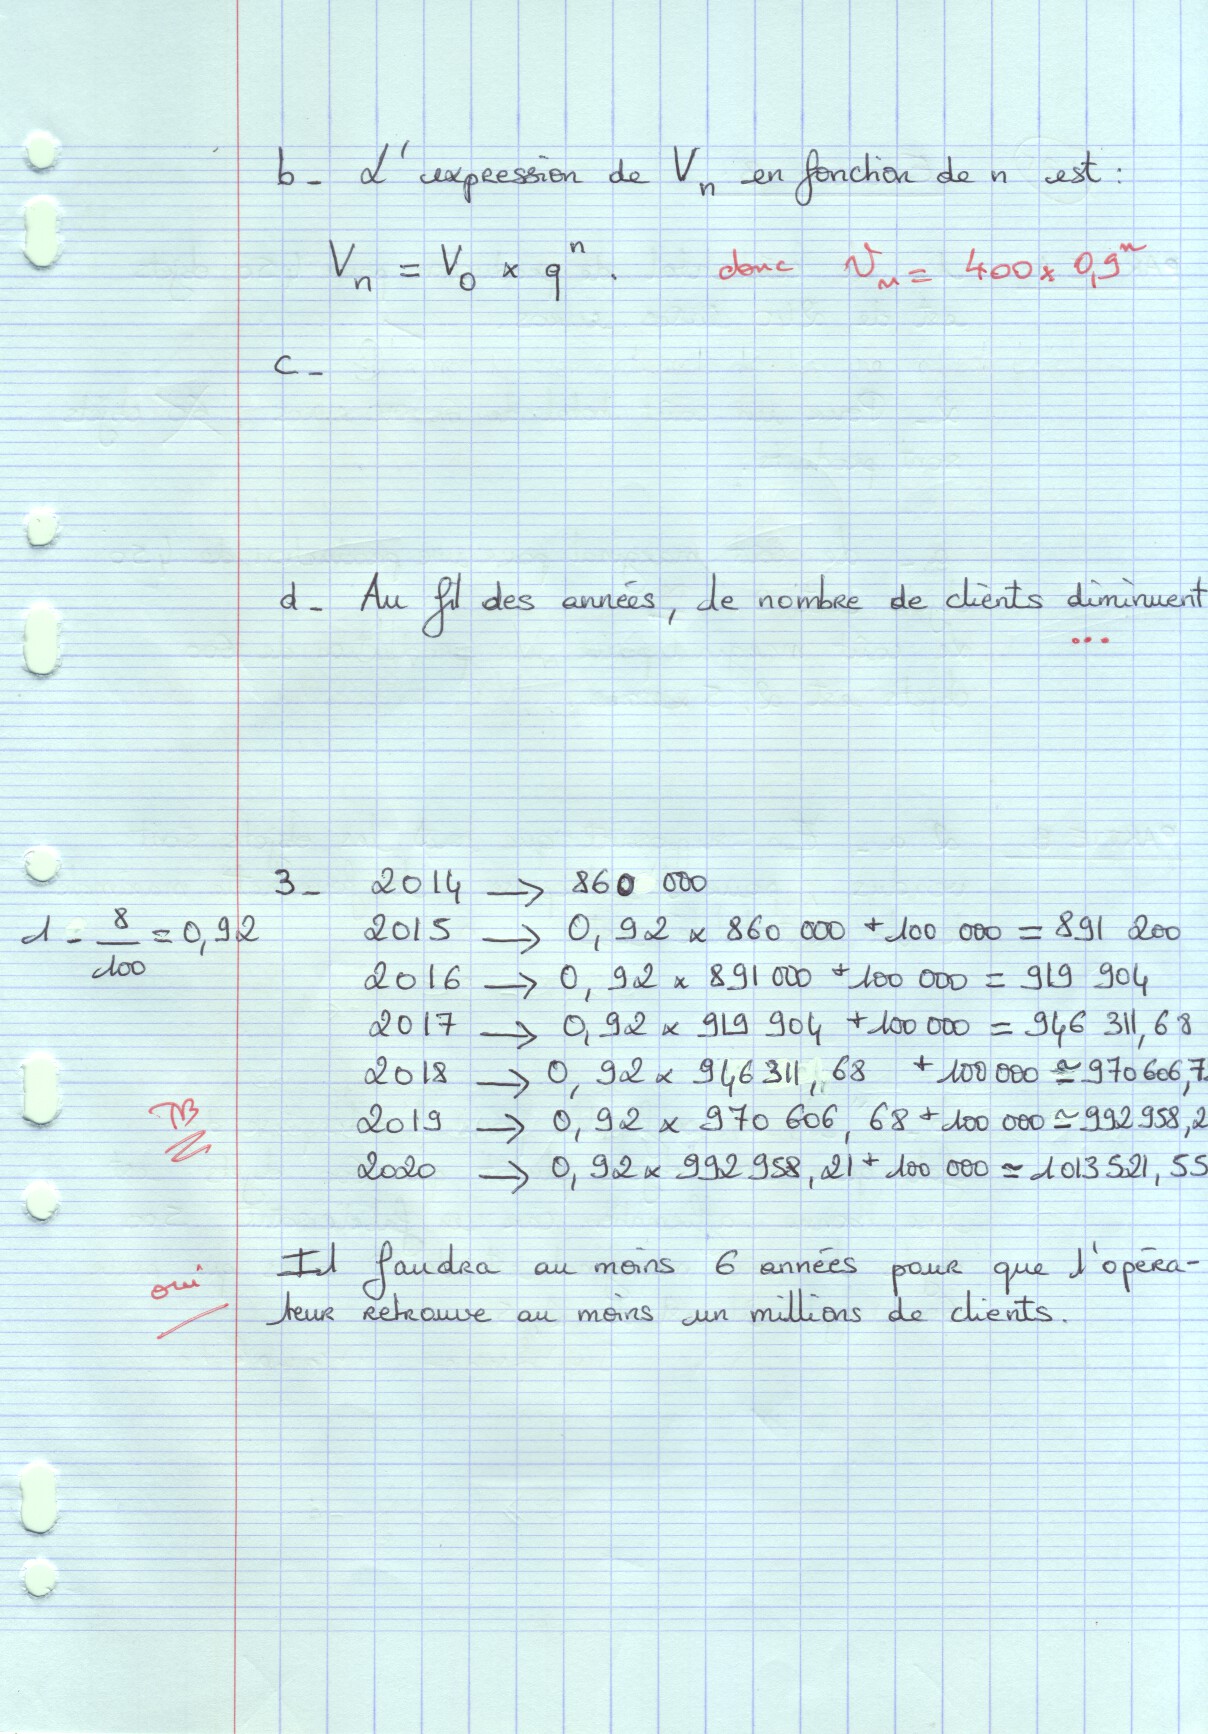 b- L'expression de Vn en fonction de n est :
Vn = V0 × q^n. donc Vn = 400 × 0,9^n
c-
d- Au fil des années, le nombre de clients diminuent
...
3- 2014 → 860 000
1 - 8/100 = 0,92 2015 → 0,92 × 860 000 + 100 000 = 891 200
2016 → 0,92 × 891 000 + 100 000 = 919 904
2017 → 0,92 × 919 904 + 100 000 = 946 311,68
2018 → 0,92 × 946 311,68 + 100 000 ≃ 970 606,7
TB 2019 → 0,92 × 970 606,68 + 100 000 ≃ 992 958,2
2020 → 0,92 × 992 958,21 + 100 000 ≃ 1 013 521,55
oui Il faudra au moins 6 années pour que l'opéra-
teur retrouve au moins un millions de clients.